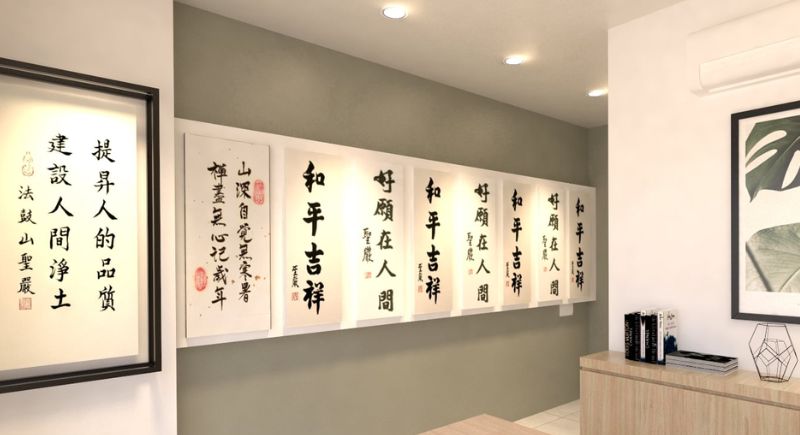 提昇人的品質
建設人間淨土
法鼓山聖嚴
山深自覺無寒暑
禪盡無心記歲年
和平吉祥
聖嚴
好願在人間
聖嚴
和平吉祥
聖嚴
好願在人間
聖嚴
和平吉祥
聖嚴
好願在人間
聖嚴
和平吉祥
聖嚴
CHANEL